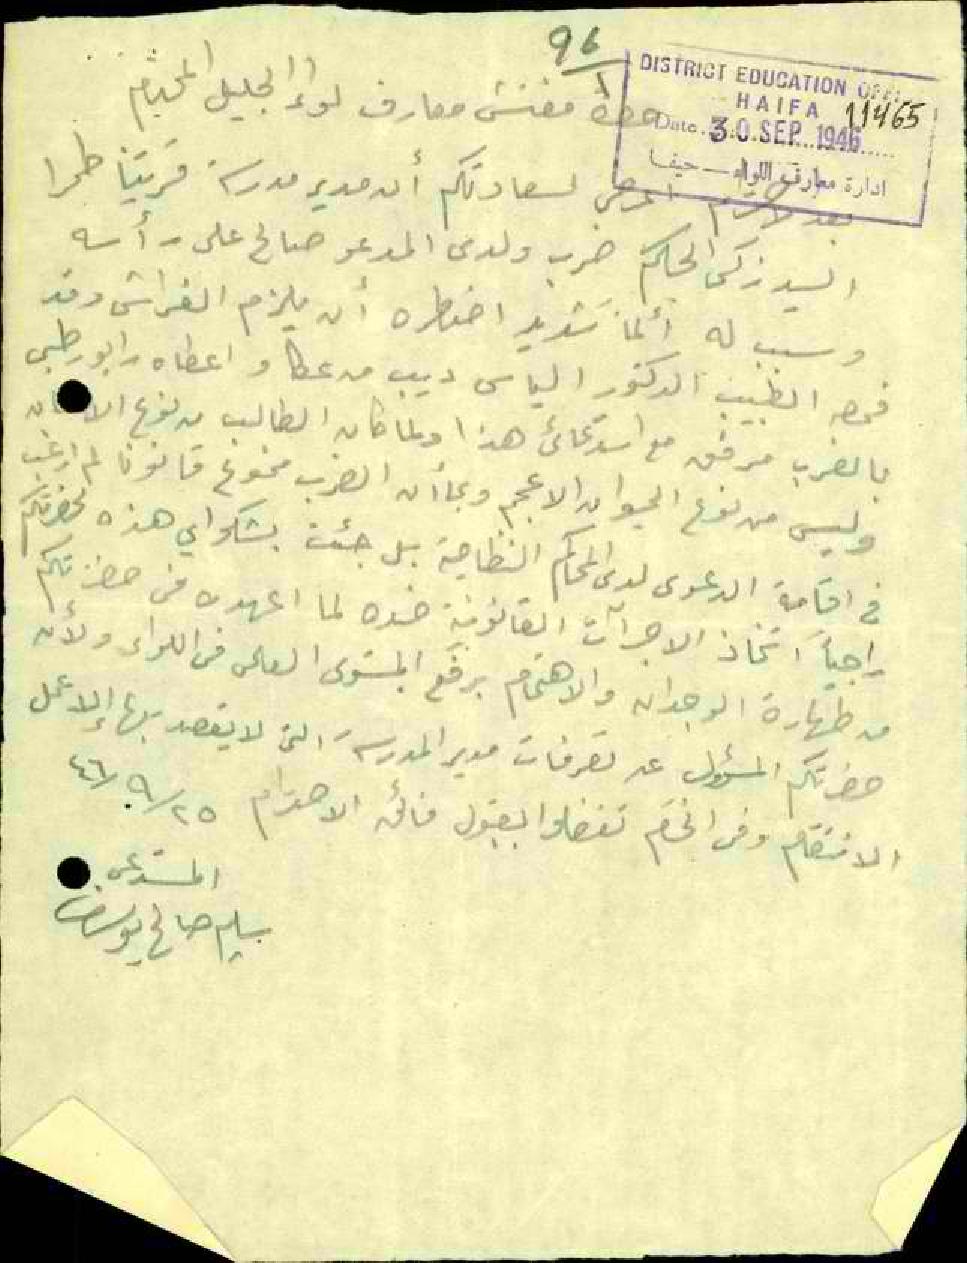 96
1
DISTRICT EDUCATION OFF
HAIFA 11465
Date. 30 SEP. 1946
ادارة معارف اللواء — حيفا
حضرة مفتش معارف لواء الجليل المحترم
بعد الاحترام اعرض لسعادتكم أن مدير مدرسة قريتنا طمرا
السيد زكي الحكم ضرب ولدى المدعو صالح على رأسه
وسبب له ألما شديد اضطره أن يلازم الفراش وقد
فحصه الطبيب الدكتور الياس ديب من عكا واعطاه رابور طبي
بالضرب مرفق مع استدعائي هذا ولما كان الطالب من نوع الانسان
وليس من نوع الحيوان الاعجم وبما أن الضرب ممنوع قانونا لم ارغب
في اقامة الدعوى لدى المحاكم النظامية بل جئت بشكواي هذه لحضرتكم
راجياً اتخاذ الاجرآت القانونية ضده لما اعهده في حضرتكم
من طهارة الوجدان والاهتمام برفع المستوى العالى في اللواء ولأن
حضرتكم المسؤول عن تصرفات مدير المدرسة التى لا يقصد بها إلا عمل
الانتقام وفى الختام تفضلوا بقبول فائق الاحترام ٤٦/٩/٢٥
المستدعى
سليم صالح يوسف